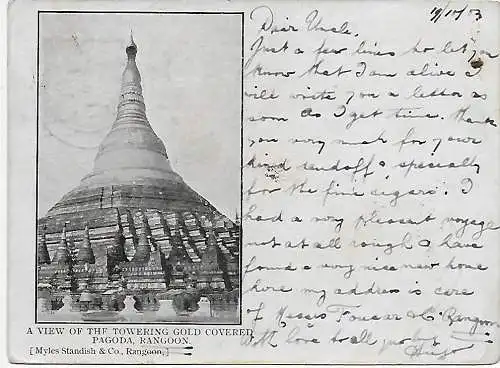 19/10/03
Dear Uncle,
Just a few lines to let you
know that I am alive I
will write you a letter as
soon as I get time. Thank
you very much for your
kind sendoff & specially
for the fine cigars. I
had a very pleasant voyage
not at all rough & have
found a very nice new home
here my address is care
of Messrs Foucar & Co. Rangoon
With love to all
Hugo
A VIEW OF THE TOWERING GOLD COVERED
PAGODA, RANGOON.
[Myles Standish & Co., Rangoon,]